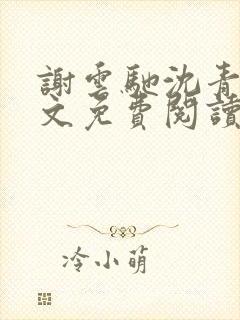 謝雲馳沈青
文免費閱讀
冷小萌